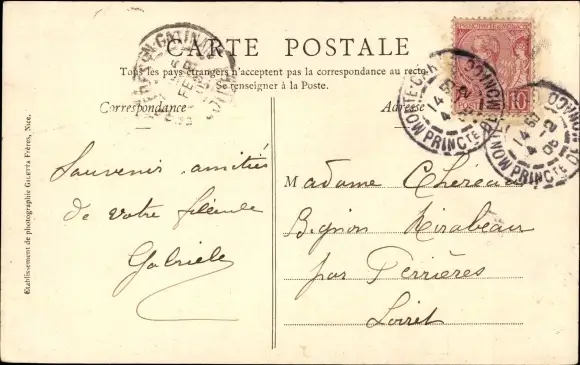 CARTE POSTALE
Tous les pays étrangers n'acceptent pas la correspondance au recto
Se renseigner à la Poste.
Correspondance
Adresse
Souvenir amitiés
de votre filleule
Gabriele
Madame Chéreau
Bignon Mirabeau
par Ferrières
Loiret
Etablissement de photographie Giletta Frères, Nice.
10
PRINCTE DE MONACO